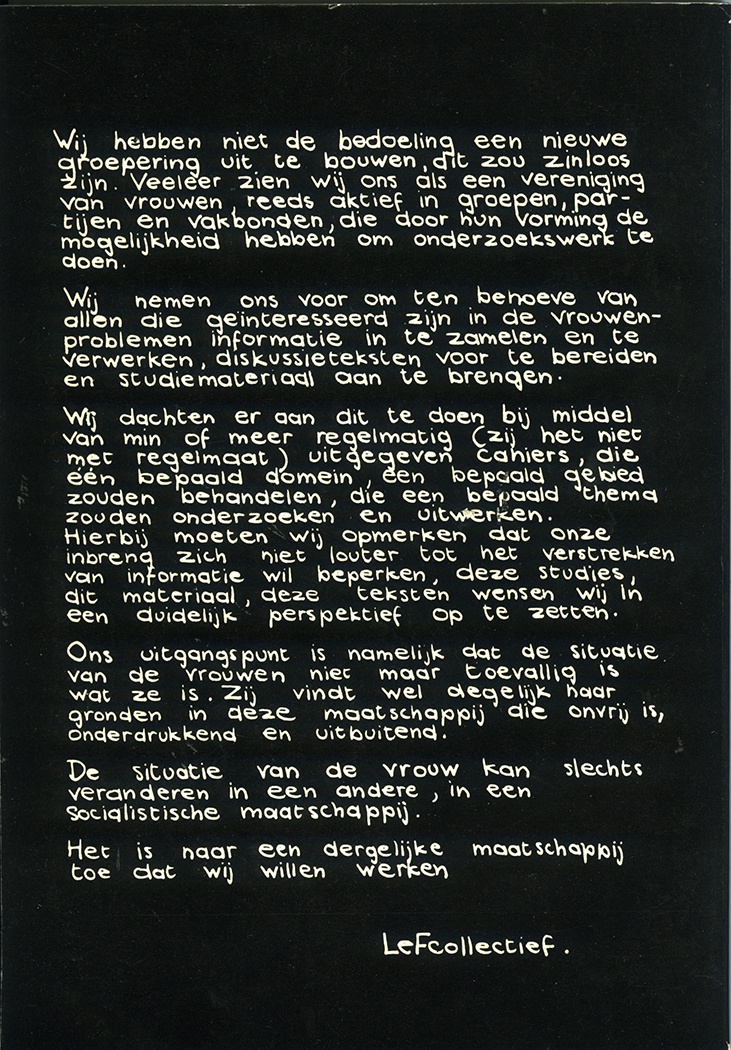 Wij hebben niet de bedoeling een nieuwe
groepering uit te bouwen, dit zou zinloos
zijn. Veeleer zien wij ons als een vereniging
van vrouwen, reeds aktief in groepen, par-
tijen en vakbonden, die door hun vorming de
mogelijkheid hebben om onderzoekswerk te
doen.
Wij nemen ons voor om ten behoeve van
allen die geïnteresseerd zijn in de vrouwen-
problemen informatie in te zamelen en te
verwerken, diskussieteksten voor te bereiden
en studiemateriaal aan te brengen.
Wij dachten er aan dit te doen bij middel
van min of meer regelmatig (zij het niet
met regelmaat) uitgegeven cahiers, die
één bepaald domein, een bepaald gebied
zouden behandelen, die een bepaald thema
zouden onderzoeken en uitwerken.
Hierbij moeten wij opmerken dat onze
inbreng zich niet louter tot het verstrekken
van informatie wil beperken, deze studies,
dit materiaal, deze teksten wensen wij in
een duidelijk perspektief op te zetten.
Ons uitgangspunt is namelijk dat de situatie
van de vrouwen niet maar toevallig is
wat ze is. Zij vindt wel degelijk haar
gronden in deze maatschappij die onvrij is,
onderdrukkend en uitbuitend.
De situatie van de vrouw kan slechts
veranderen in een andere, in een
socialistische maatschappij.
Het is naar een dergelijke maatschappij
toe dat wij willen werken
LeFcollectief.